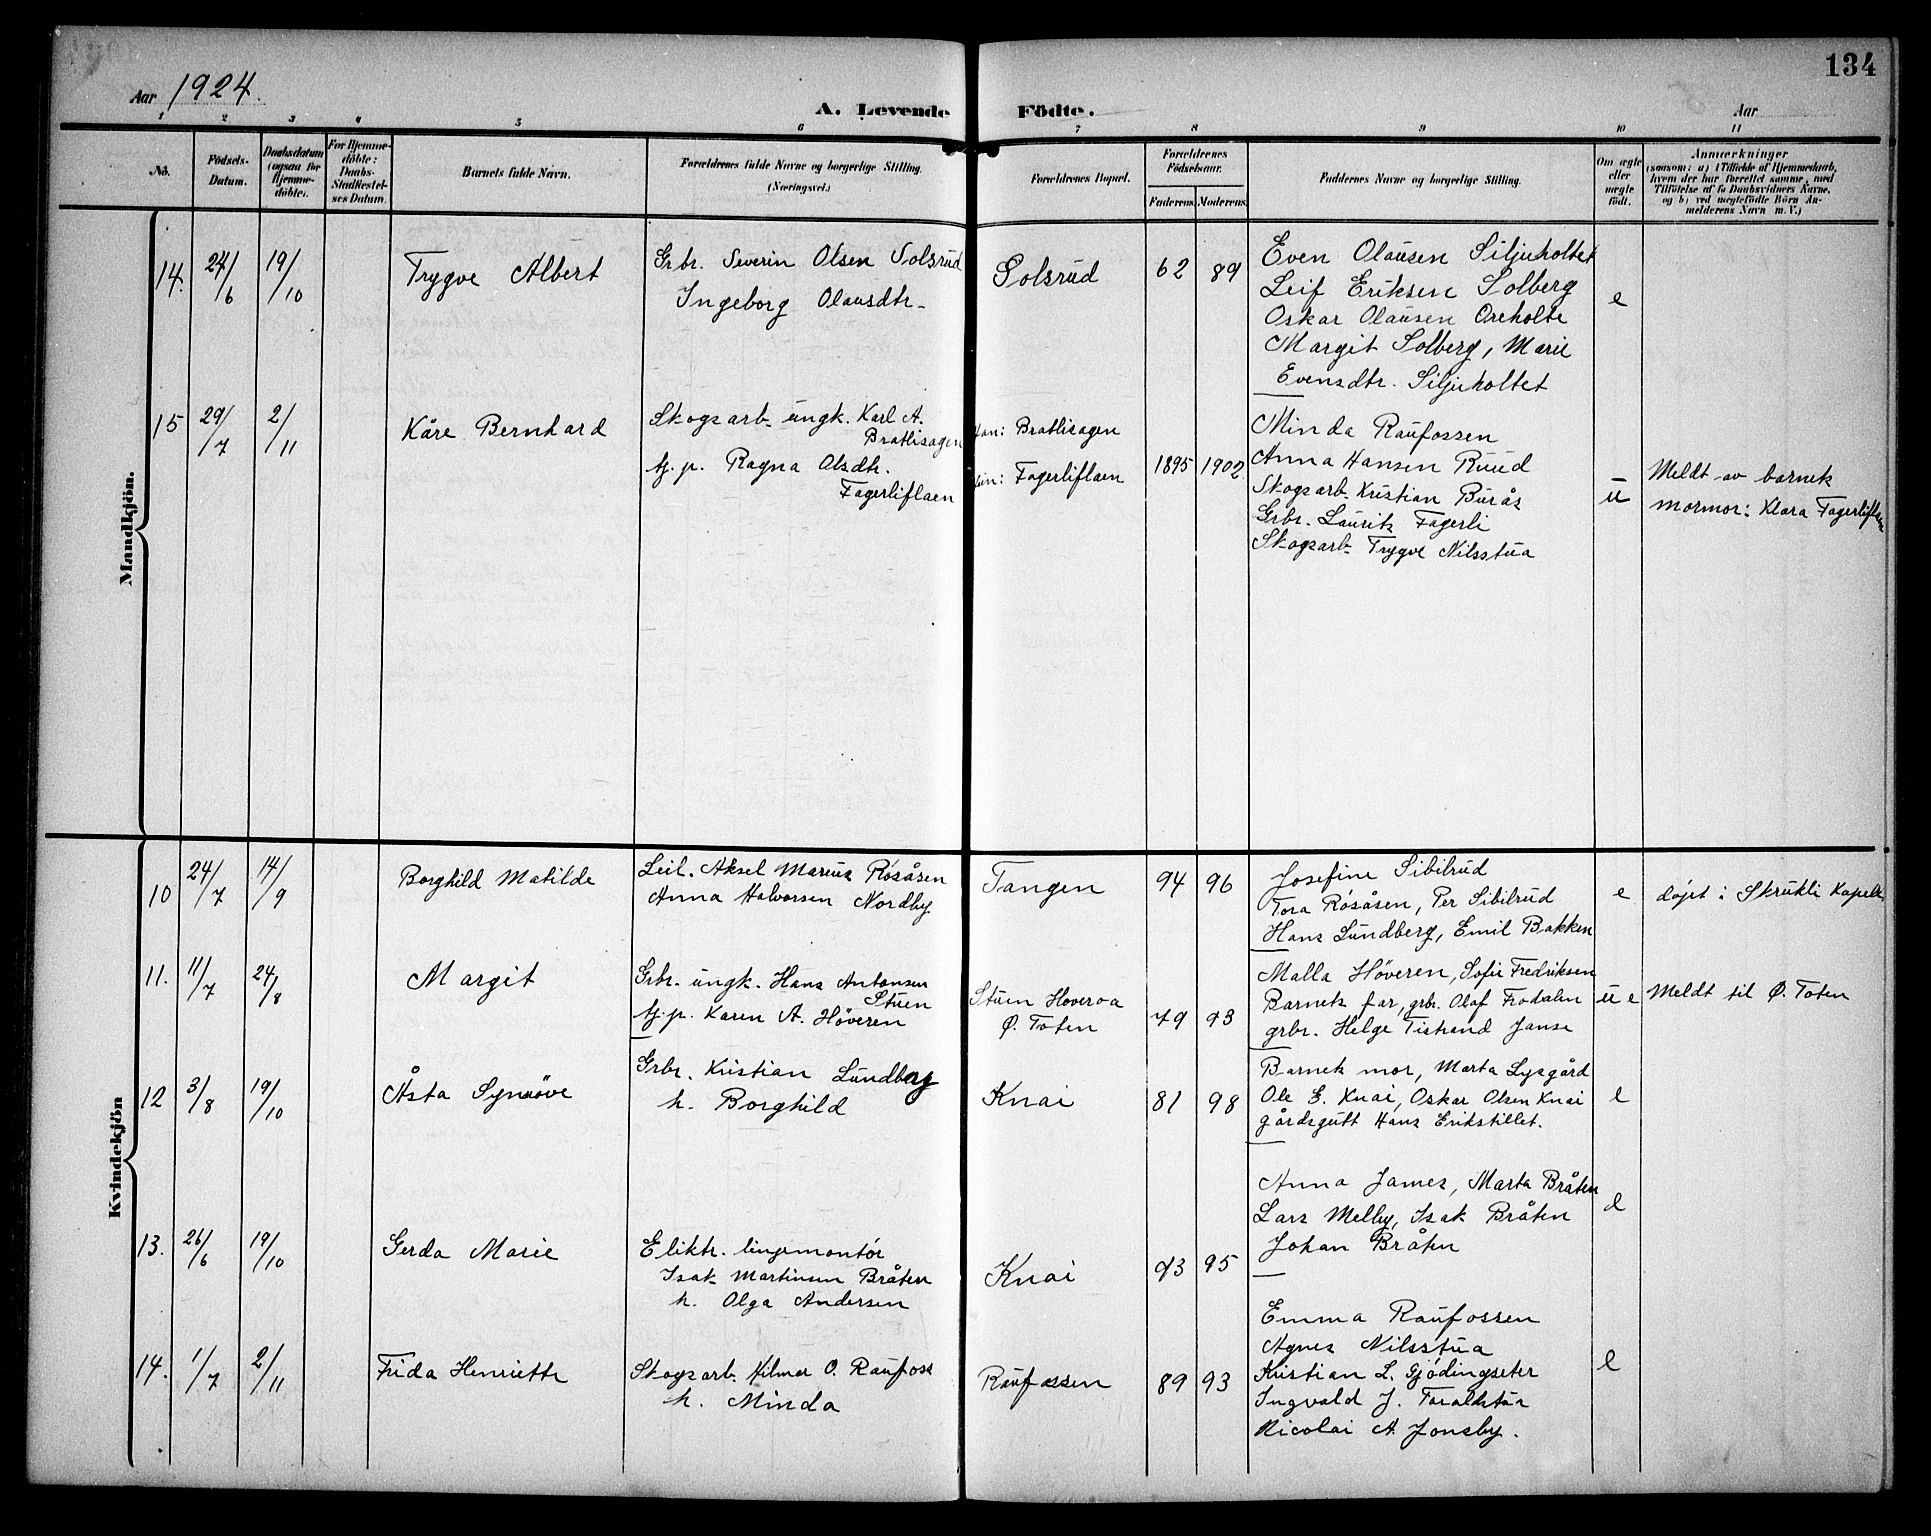 134
Aar 1924.
A. Levende Födte.
Aar
1 2 3 4 5 6 7 8 9 10 11
No.
Födsels-
Datum.
Daabsdatum
(ogsaa for
Hjemme-
döbte).
For Hjemme-
döbte:
Daabs-
Stadfæstel-
ses Datum.
Barnets fulde Navn.
Forældrenes fulde Navne og borgerlige Stilling.
(Næringsvei.)
Forældrenes Bopæl.
Forældrenes
Födselsaar.
Faderens. Moderens.
Faddernes Navne og borgerlige Stilling.
Om ægte
eller
uægte
födt.
Anmærkninger
(saasom: a) i Tilfælde af Hjemmedaab,
hvem der har forrettet samme, med
Tilföielse af to Daabsvidners Navne,
og b) ved uægtefödte Börn An-
melderens Navn m. V.)
Mandkjön.
14. 24/6 19/10 Trygve Albert
Grbr. Severin Olsen Solsrud
Ingeborg Olausdtr.
Solsrud 62 89
Even Olausen Siljuholtet
Leif Eriksen Solberg
Oskar Olausen Oreholte
Margit Solberg, Marie
Evensdtr. Siljuholtet
e
15 29/7 2/11 Kåre Bernhard
Skogsarb. ungk. Karl A.
Bratlisagen
tj. p. Ragna Olsdtr.
Fagerliflaen
Han: Bratlisagen
Hun: Fagerliflaen 1895 1902
Minda Raufossen
Anna Hansen Ruud
Skogsarb. Kristian Burås
Grbr. Laurits Fagerli
Skogsarb. Trygve Nilsstua
u
Meldt av barnets
mormor: Klara Fagerliflaen
Kvindekjön
10 24/7 14/9 Borghild Matilde
Leil. Aksel Marius Røsåsen
Anna Halvorsen Nordby
Tangen 94 96
Josefine Sibilrud
Tora Røsåsen, Per Sibilrud
Hans Lundberg, Emil Bakken
e
døpt i Skrukli Kapell
11. 11/7 24/8 Margit
Grbr. ungk. Hans Antonsen
Stuen
tj. p. Karen A. Høveren
Stuen Hoveroa
Ø. Toten 79 93
Malla Høveren, Sofie Fredriksen
Barnets far, grbr. Olaf Frodalen
grbr. Helge Tistrand Janse
u e
Meldt til Ø. Toten
12 3/8 19/10 Åsta Synnöve
Grbr. Kristian Lundberg
h. Borghild
Knai 81 98
Barnets mor, Marta Lysgård
Ole E. Knai, Oskar Olsen Knai
gårdsgutt Hans Erikstillet.
e
13. 26/6 19/10 Gerda Marie
Elektr. linjemontør
Isak Martinsen Bråten
h. Olga Andersen
Knai 93 95
Anna James, Marta Bråten
Lars Melby, Isak Bråten
Johan Bråten
e
14. 1/7 2/11 Frida Henriette
Skogsarb. Hilmar O. Raufoss
h. Minda
Raufossen 89 93
Emma Raufossen
Agnes Nilsstua
Kristian L. Gjødingseter
Ingvald J. Taraldstua
Nicolai A. Jonsby.
e